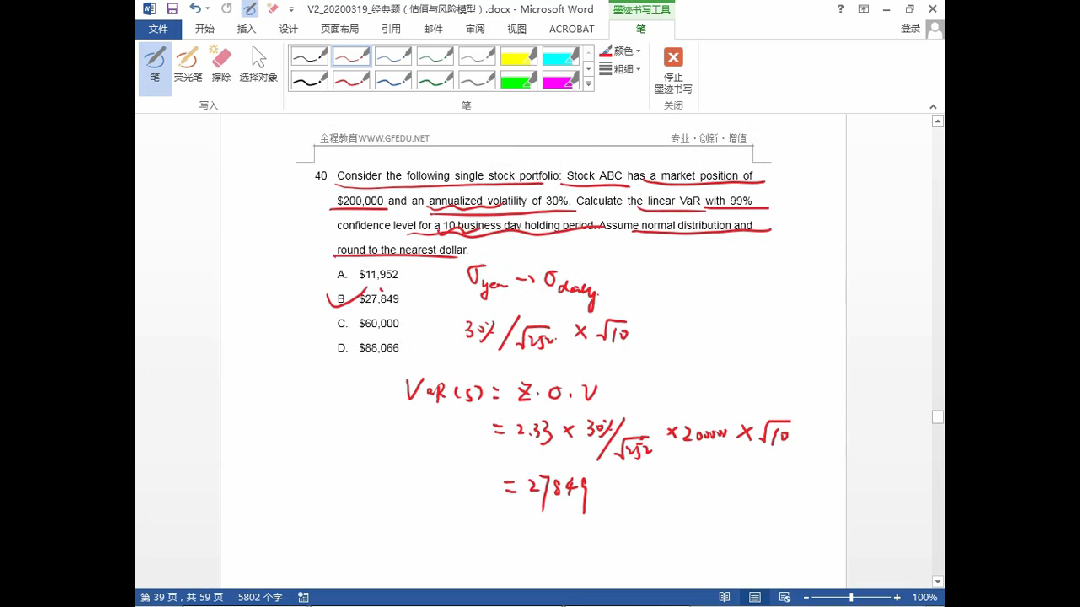 V2_20200319_经典题（估值与风险模型）.docx - Microsoft Word
墨迹书写工具
文件
开始
插入
设计
页面布局
引用
邮件
审阅
视图
ACROBAT
笔
登录
笔
荧光笔
擦除
选择对象
颜色
粗细
停止
墨迹书写
写入
笔
关闭
全程教育WWW.GFEDU.NET
专业·创新·增值
40 Consider the following single stock portfolio: Stock ABC has a market position of
$200,000 and an annualized volatility of 30%. Calculate the linear VaR with 99%
confidence level for a 10 business day holding period. Assume normal distribution and
round to the nearest dollar.
A. $11,952
B. $27,849
C. $60,000
D. $88,066
σyear → σdaily.
30%/√252. × √10
VaR($) = Z·σ·V
= 2.33 × 30%/√252 × 200000 × √10
= 27849
第 39 页，共 59 页
5802 个字
100%